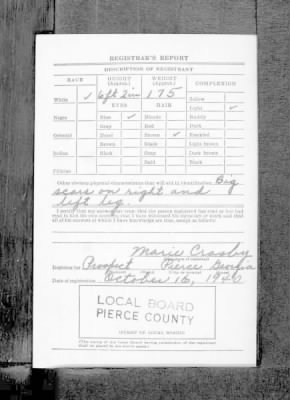 REGISTRAR'S REPORT
DESCRIPTION OF REGISTRANT
RACE HEIGHT (Approx.) WEIGHT (Approx.) COMPLEXION
White ✓ 6 ft 2 in 175 Sallow
EYES HAIR Light ✓
Negro Blue ✓ Blonde Ruddy
Gray Red Dark
Oriental Hazel Brown ✓ Freckled
Brown Black Light brown
Indian Black Gray Dark brown
Bald Black
Filipino
Other obvious physical characteristics that will aid in identification Big
scars on right and
left leg.
I certify that my answers are true; that the person registered has read or has had
read to him his own answers; that I have witnessed his signature or mark and that
all of his answers of which I have knowledge are true, except as follows:
Marie Crosby
(Signature of registrar)
Registrar for Prospect Pierce Georgia
Date of registration October 16, 1940
LOCAL BOARD
PIERCE COUNTY
(STAMP OF LOCAL BOARD)
(The stamp of the Local Board having jurisdiction of the registrant
shall be placed in the above space.)